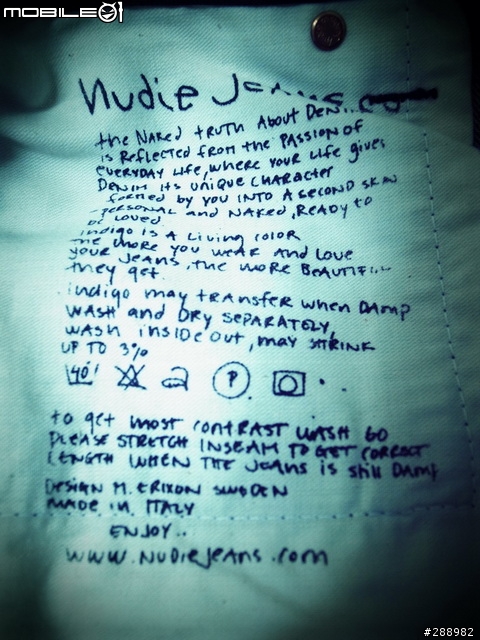 MOBILE01
Nudie Jeans co
the NAKED truth About DENIM
is Reflected from the PASSION of
everyday life, where your life gives
DENIM its unique character
formed by you INTO A SECOND SKIN
PERSONAL and NAKED, READY to
be loved
indigo is A living color
the more you WEAR AND LOVE
your JEANS, the more BEAUTIFUL
they get.
indigo may transfer when DAMP
WASH and DRY SEPARATELY,
WASH inside out, may SHRINK
UP TO 3%
40°
P
to get most contrast WASH 60
PLEASE STRETCH INSEAM TO GET CORRECT
LENGTH WHEN THE JEANS is still DAMP
DESIGN M. ERIXON SWEDEN
MADE IN ITALY
ENJOY..
www.NudieJeans.com
#288982